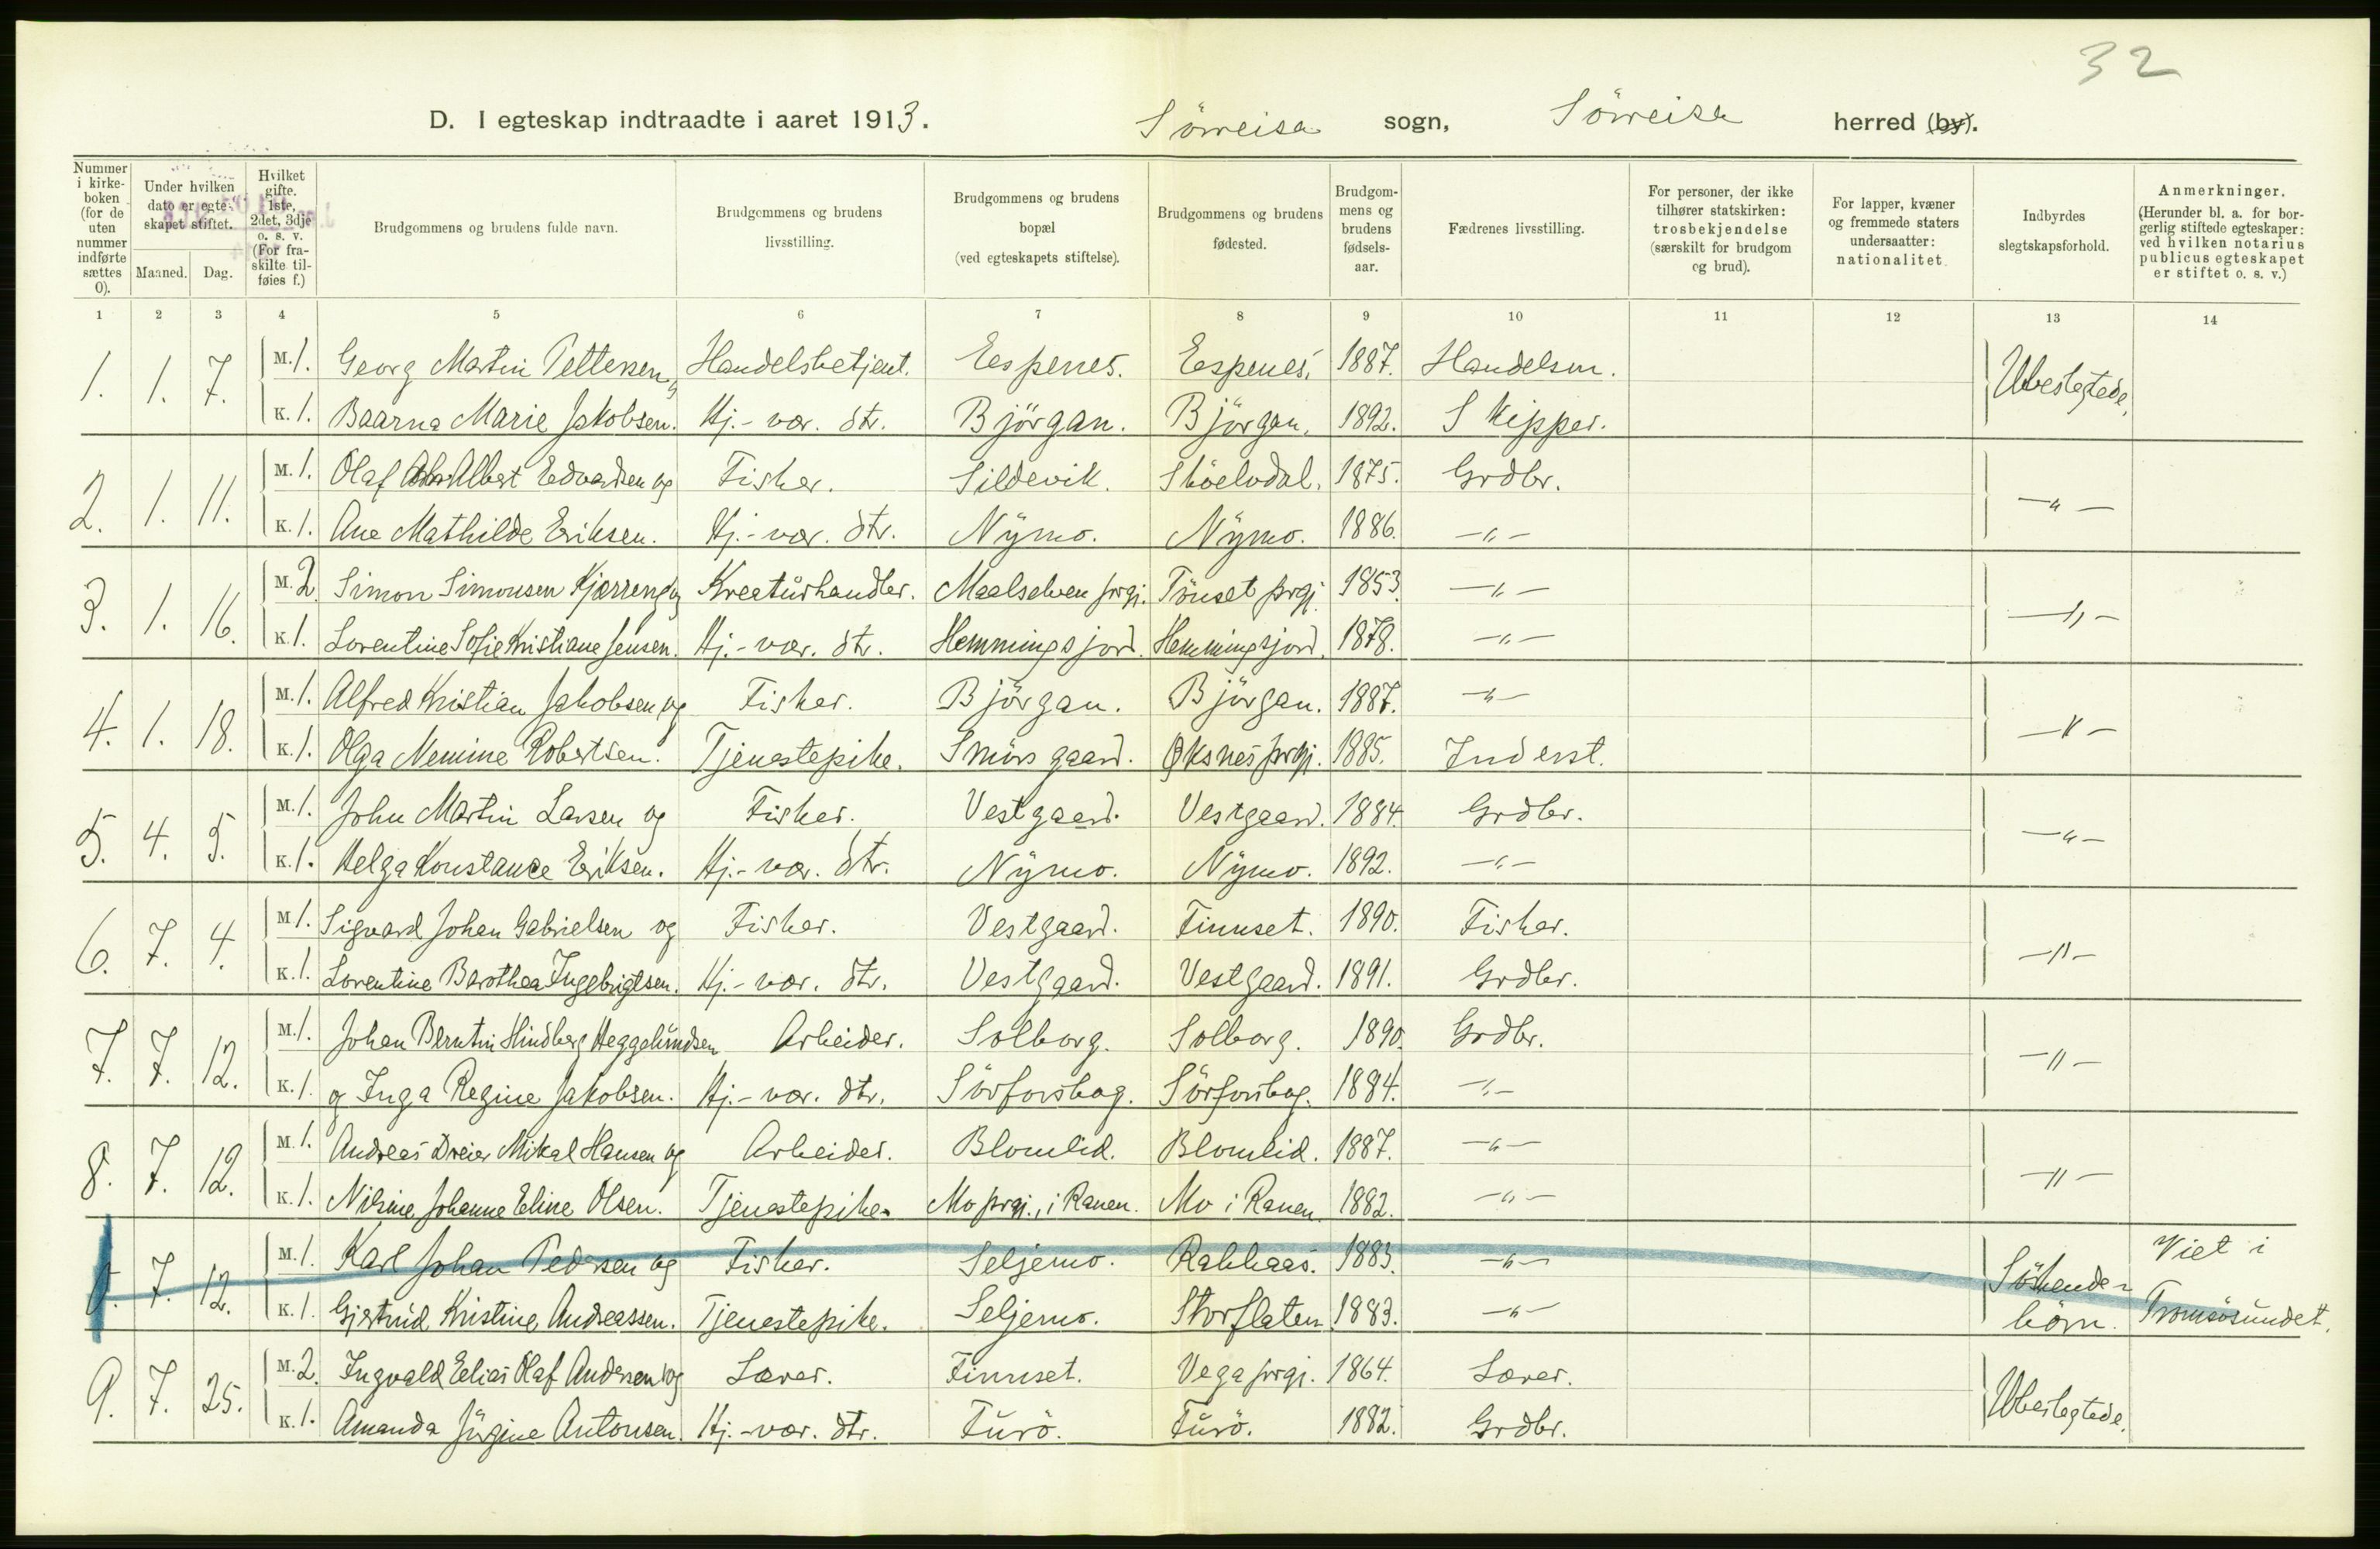 32
D. I egteskap indtraadte i aaret 1913. Sörreisa sogn, Sörreisa herred (by).
Nummer i kirkeboken (for de uten nummer indførte sættes 0). Under hvilken dato er egteskapet stiftet. Maaned. Dag. Hvilket gifte. 1ste, 2det, 3dje o. s. v. (For fraskilte tilføies f.) Brudgommens og brudens fulde navn. Brudgommens og brudens livsstilling. Brudgommens og brudens bopæl (ved egteskapets stiftelse). Brudgommens og brudens fødested. Brudgommens og brudens fødselsaar. Fædrenes livsstilling. For personer, der ikke tilhører statskirken: trosbekjendelse (særskilt for brudgom og brud). For lapper, kvæner og fremmede staters undersaatter: nationalitet. Indbyrdes slegtskapsforhold. Anmerkninger. (Herunder bl. a. for borgerlig stiftede egteskaper: ved hvilken notarius publicus egteskapet er stiftet o. s. v.)
1 2 3 4 5 6 7 8 9 10 11 12 13 14
1. 1. 7. M. 1. Georg Martin Pettersen " Handelsbetjent. Eespenes. Eespenes. 1887. Handelsm. Ubeslegtede.
K. 1. Baarna Marie Jakobsen. Hj.-vær. dtr. Björgan. Björgan. 1892. Skipper.
2. 1. 11. M. 1. Olaf Albert Edvardsen og Fisker. Sildevik. Sköelvdal. 1875. Grdbr. -"-
K. 1. Ane Mathilde Eriksen. Hj.-vær. dtr. Nymo. Nymo. 1886. -"-
3. 1. 16. M. 2. Simon Simonsen Kjærreng og Kreaturhandler. Maalselven prgj. Tönset prgj. 1853. -"- -"-
K. 1. Lorentine Sofie Kristiane Jensen. Hj.-vær. dtr. Hemmingsjord. Hemmingsjord. 1878. -"-
4. 1. 18. M. 1. Alfred Kristian Jakobsen og Fisker. Björgan. Björgan. 1887. -"- -"-
K. 1. Olga Nemine Robertsen. Tjenestepike. Smörsgaard. Øksnes prgj. 1885. Inderst.
5. 4. 5. M. 1. John Martin Larsen og Fisker. Vestgaard. Vestgaard. 1884. Grdbr. -"-
K. 1. Helga Konstance Eriksen. Hj.-vær. dtr. Nymo. Nymo. 1892. -"-
6. 7. 4. M. 1. Sigvard Johan Gabrielsen og Fisker. Vestgaard. Finnset. 1890. Fisker. -"-
K. 1. Lorentine Barothea Ingebrigtsen. Hj.-vær. dtr. Vestgaard. Vestgaard. 1891. Grdbr.
7. 7. 12. M. 1. Johan Berntin Hindberg Heggelundsen Arbeider. Solborg. Solborg. 1890. Grdbr. -"-
K. 1. og Inga Regine Jakobsen. Hj.-vær. dtr. Sörforsbag. Sörforsbag. 1884. -"-
8. 7. 12. M. 1. Andreas Dreier Mikal Hansen og Arbeider. Blomlid. Blomlid. 1887. -"- -"-
K. 1. Nilsine Johanne Eline Olsen. Tjenestepike. Mo prgj., i Ranen. Mo i Ranen. 1882. -"-
0. 7. 12. M. 1. Karl Johan Pedersen og Fisker. Seljemo. Rakkaas. 1883. -"- Söskende- Viet i
K. 1. Gjertrud Kristine Andreassen. Tjenestepike. Seljemo. Storflaten. 1883. -"- börn. Tromsösundet.
9. 7. 25. M. 2. Ingvald Eelias Olaf Andersen og Lærer. Finnset. Vega prgj. 1864. Lærer. Ubeslegtede.
K. 1. Amanda Jörgine Antonsen. Hj.-vær. dtr. Furö. Furö. 1882. Grdbr.